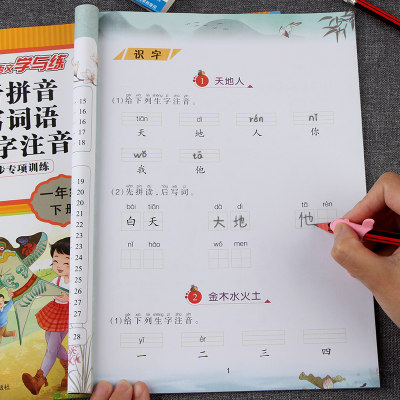 学与练
拼音
写词语
字注音
步专项训练
一年级
下册
15
16
17
18
19
20
21
22
23
27
28
识字
1 天地人
(1)给下列生字注音。
tiān dì rén nǐ
天 地 人 你
wǒ tā
我 他
(2)先拼读,后写词。
bái tiān dà dì tā rén
白天 大地 他
nǐ hǎo wǒ men
2 金木水火土
(1)给下列生字注音。
yī èr
一 二 三 四
1